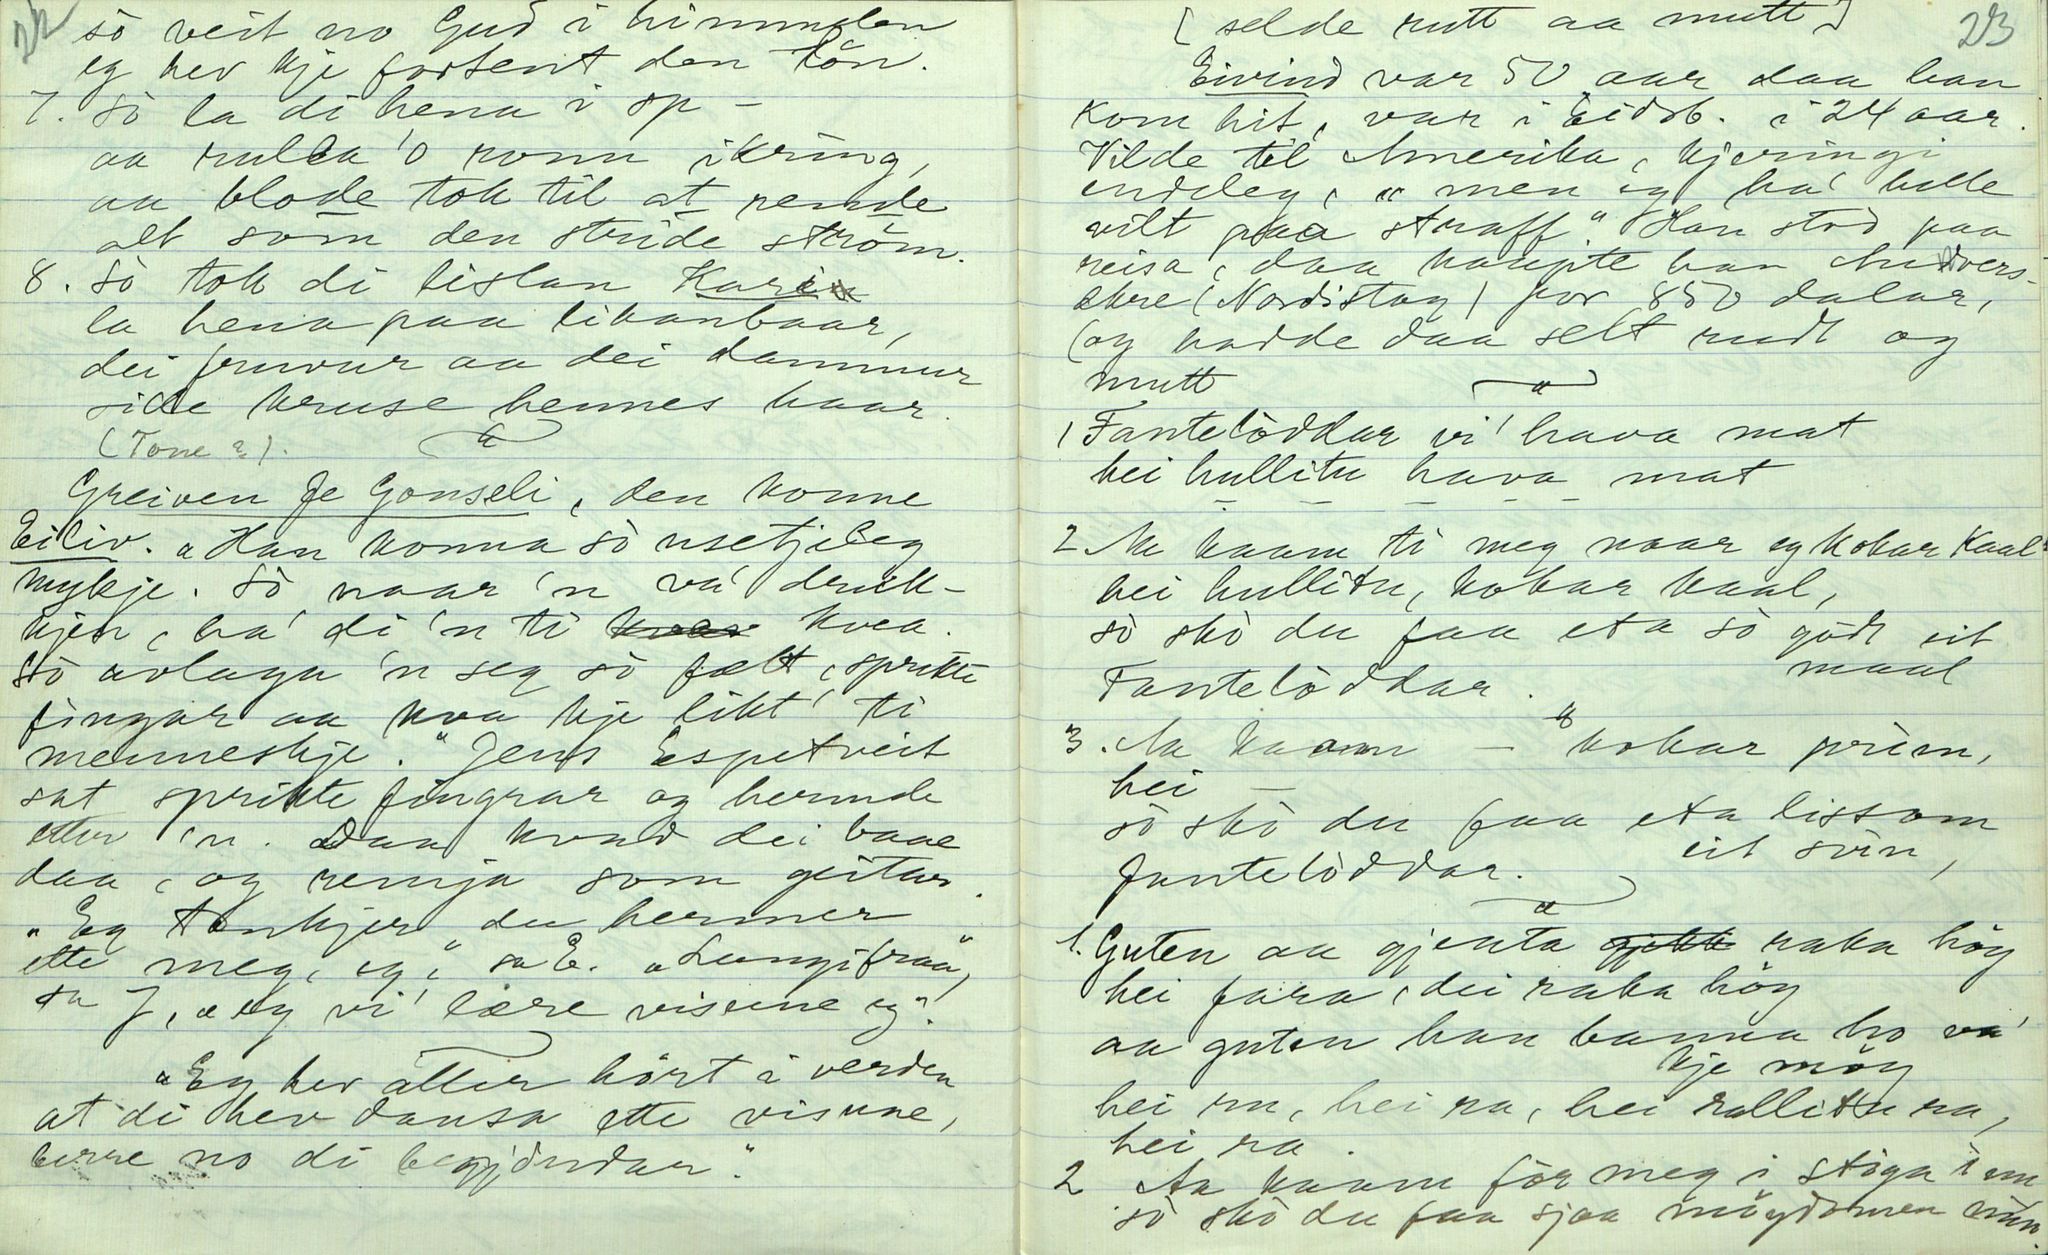 22
sò veit no Gud i himmelen
eg hev kje fortent den tòn.
7. Sò la di hena i sp –
aa rulla 'o ronn ikring,
aa blode tok til at rende
alt som den stride ström.
8. Sò tok di lislan Karin
la hena paa likanbaar,
dei fruvur aa dei dammur
side kruse hennes haar.
(Tone ?).
Greiven Je Gonseli, den konne
Eiliv. "Han konna sò usetjeleg
mykje. Sò naar 'n va' druk-
kjen, ha' di 'n ti kvea.
Sò avlaga 'n seg sò fælt, sprikte
fingar aa kva kje likt' ti
menneskje." Jens Espetveit
sat sprikte fingrar og hermde
etter 'n. Daa kvad dei baae
daa, og remja som geitar.
"Eg tenkjer du hermer
ette meg, eg," sa E. "Lungifraa",
sa J, "eg vi' lære visune eg".
"Eg hev alter hört i verden
at di hev dansa ette visune,
berre no di begjyndar".
23
[selde rutt aa mutt]
Eivind var 50 aar daa han
kom hit, var i Eidsb. i 24 aar.
Vilde til Amerika, kjeringi
endeleg, "men eg ha' helle
vilt paa straff." Han stod paa
reisa, daa kaupte han Andvers-
(Nordistog) for 850 dalar,
(og hadde daa selt rudt og
mutt
1 Fantelòddar vi' hava mat
hei hullitu hava mat
– – – – –
2 Aa kaam ti meg naar eg kokar kaal
hei hullitu, kokar kaal,
sò skò du faa eta sò godt eit
maal
Fantelòddar.
3. Aa kaam – " kokar prim,
hei –
sò skò du faa eta lissom
eit svin,
fantelòddar.
1. Guten aa gjenta raka höy
hei fara, dei raka höy
aa guten han banna ho va'
kje möy
hei ra, hei ra, hei rallitu ra,
hei ra.
2 Aa kaam för meg i stöga inn
sò skò du faa sjaa möydomen min.